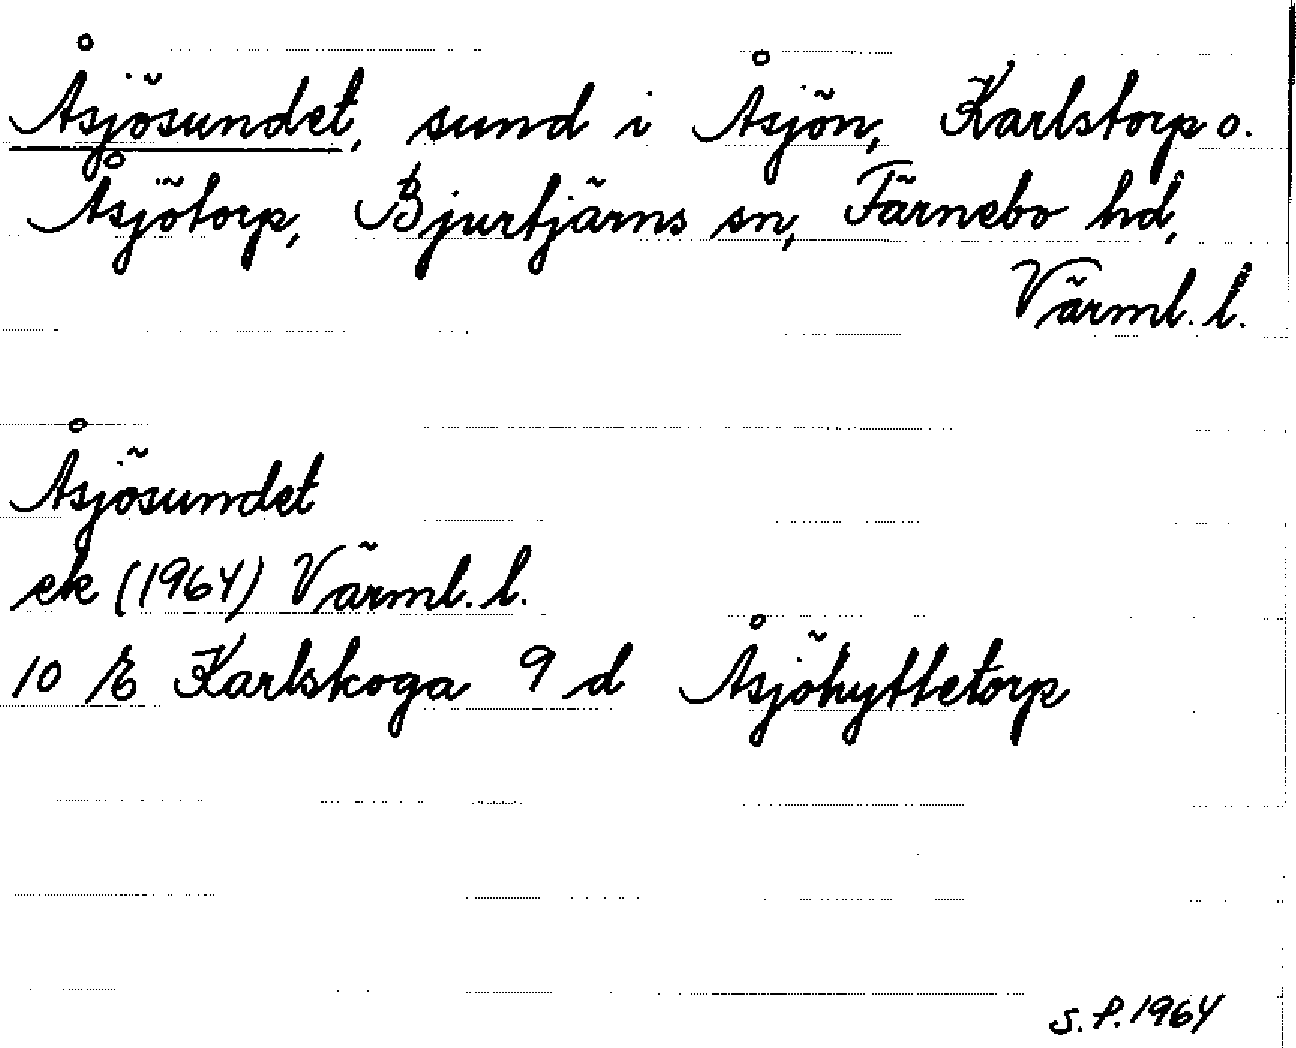 Åsjösundet, sund i Åsjön, Karlstorp o.
Åsjötorp, Bjurtjärns sn, Färnebo hd,
Värml. l.
Åsjösundet
ek (1964) Värml. l.
10 E Karlskoga 9 d Åsjöhyttetorp
S. P. 1964